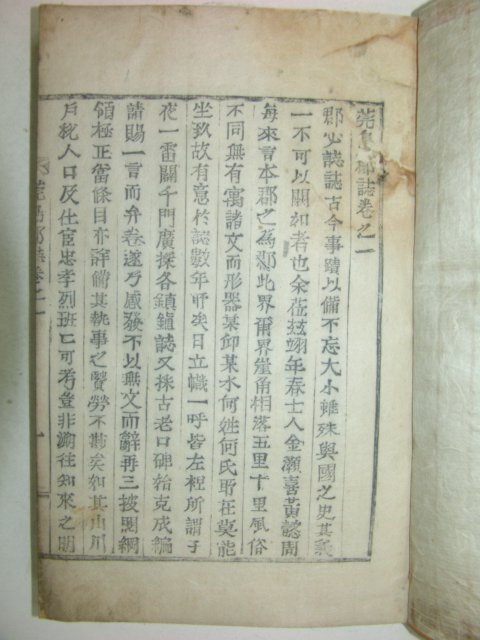 莞島郡誌卷之一
郡必誌誌古今事蹟以備不忘大小雖殊與國之史其義
一不可以闕如者也余莅玆翊年春士人金灝喜黃懿周
每來言本郡之為郡此界爾界望角相落五里十里風俗
不同無有寓諸文而形器某仰某木何姓何氏所在莫能
坐玖故有意於誌數年所矣日立幟一呼皆左袒所謂子
夜一雷闢千門廣採各鎭鎭誌又採古老口碑紿克成編
請賜一言而弁卷遂乃感發不以無文而辭再三披閱綱
領極正當條目亦詳備其執事之賢勞不尠矣如其山川
戶紇人口及仕宦忠孝烈班班可考豈非謝往知來之明
莞島郡誌卷之一
一